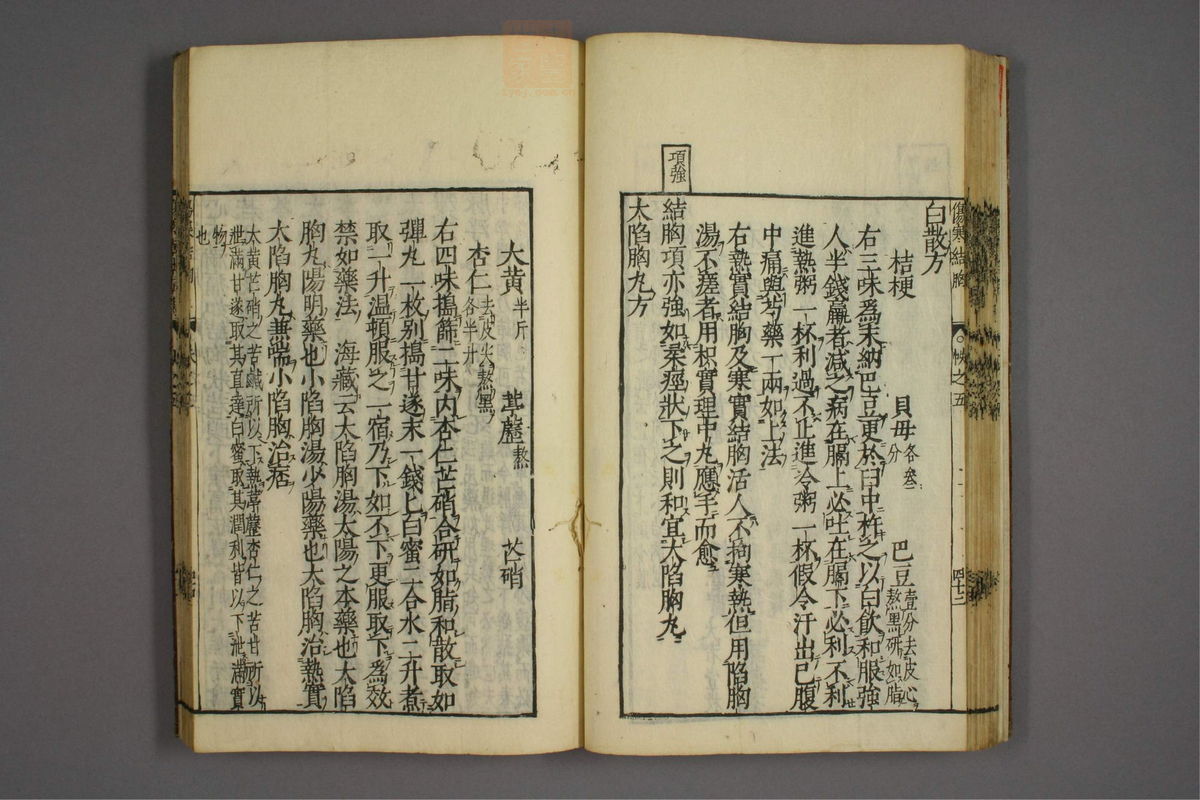 傷寒結胸
帙之五
四十三
白散方
桔梗 貝毋各叁分 巴豆壹分去皮心熬黑研如脂
右三味爲末納巴豆更於臼中杵之以白飲和服強
人半錢羸者減之病在膈上必吐在膈下必利不利
進熱粥一杯利過不止進冷粥一杯假令汗出已腹
中痛與芍藥一兩如上法
右熱實結胸及寒實結胸活人不拘寒熱但用陷胸
湯不瘥者用枳實理中丸應手而愈
項強
結胸項亦強如柔痙狀下之則和宜大陷胸丸
大陷胸丸方
大黃半斤 葶藶熬 芒硝
杏仁各半升去皮尖熬黑
右四味搗篩二味內杏仁芒硝合研如脂和散取如
彈丸一枚别搗甘遂末一錢匕白蜜二合水二升煮
取一升溫頓服之一宿乃下如不下更服取下爲效
禁如藥法 海藏云大陷胸湯太陽之本藥也大陷
胸丸陽明藥也小陷胸湯少陽藥也大陷胸治熱實
大陷胸丸兼喘小陷胸治痞
大黃芒硝之苦鹹所以下熱葶藶杏仁之苦甘所以
泄滿甘遂取其直達白蜜取其潤利皆以下泄滿實
物也